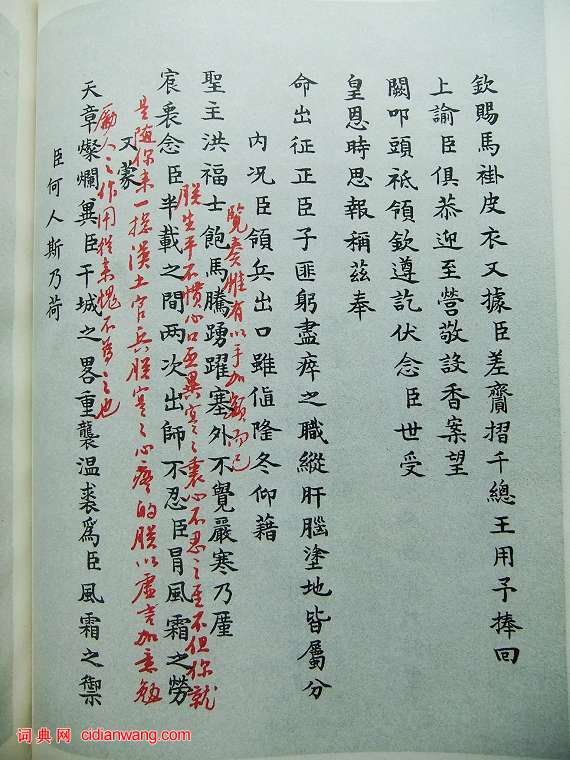 欽賜馬褂皮衣又據臣差齎摺千總王用予捧回
上諭臣俱恭迎至營敬設香案望
闕叩頭祗領欽遵訖伏念臣世受
皇恩時思報稱茲奉
命出征正臣子匪躬盡瘁之職縱肝腦塗地皆屬分
內况臣領兵出口雖值隆冬仰藉
覽奏惟有以手加額而已
聖主洪福士飽馬騰踴躍塞外不覺嚴寒乃廑
朕生平不慣心口面異寔寔衷心不忍之至不但你就
宸衷念臣半載之間两次出師不忍臣冒風霜之勞
是隨你来一揔漢土官兵朕寔寔心疼的朕以虛言加意勉
又蒙
勵人之作用從来愧不為之也
天章燦爛兾臣干城之畧重襲温裘為臣風霜之禦
臣何人斯乃荷
词典网 cidianwang.com